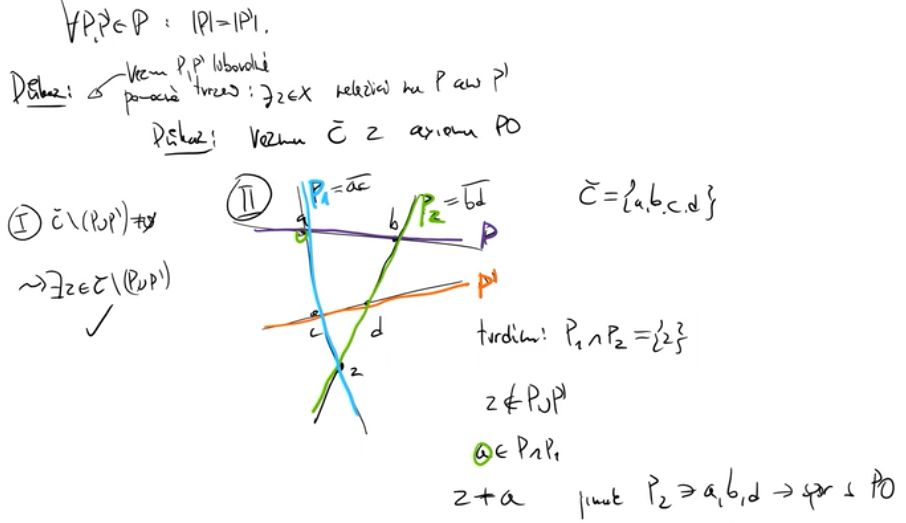 ∀P,P'∈𝒫 : |P|=|P'|.
Vezmu P,P' libovolné
Důkaz: pomocné tvrzení: ∃z∈X neležící na P ani P'
Důkaz: Vezmu Č z axiomu PO
I Č\(P∪P')≠∅
⇝ ∃z∈Č\(P∪P')
✓
II P₁=ac̅ P₂=bd̅
a b P
P'
c d
z
Č={a,b,c,d}
tvrdím: P₁∩P₂={z}
z∉P∪P'
a∈P∩P₁
z≠a jinak P₂∋a,b,d → spor s PO